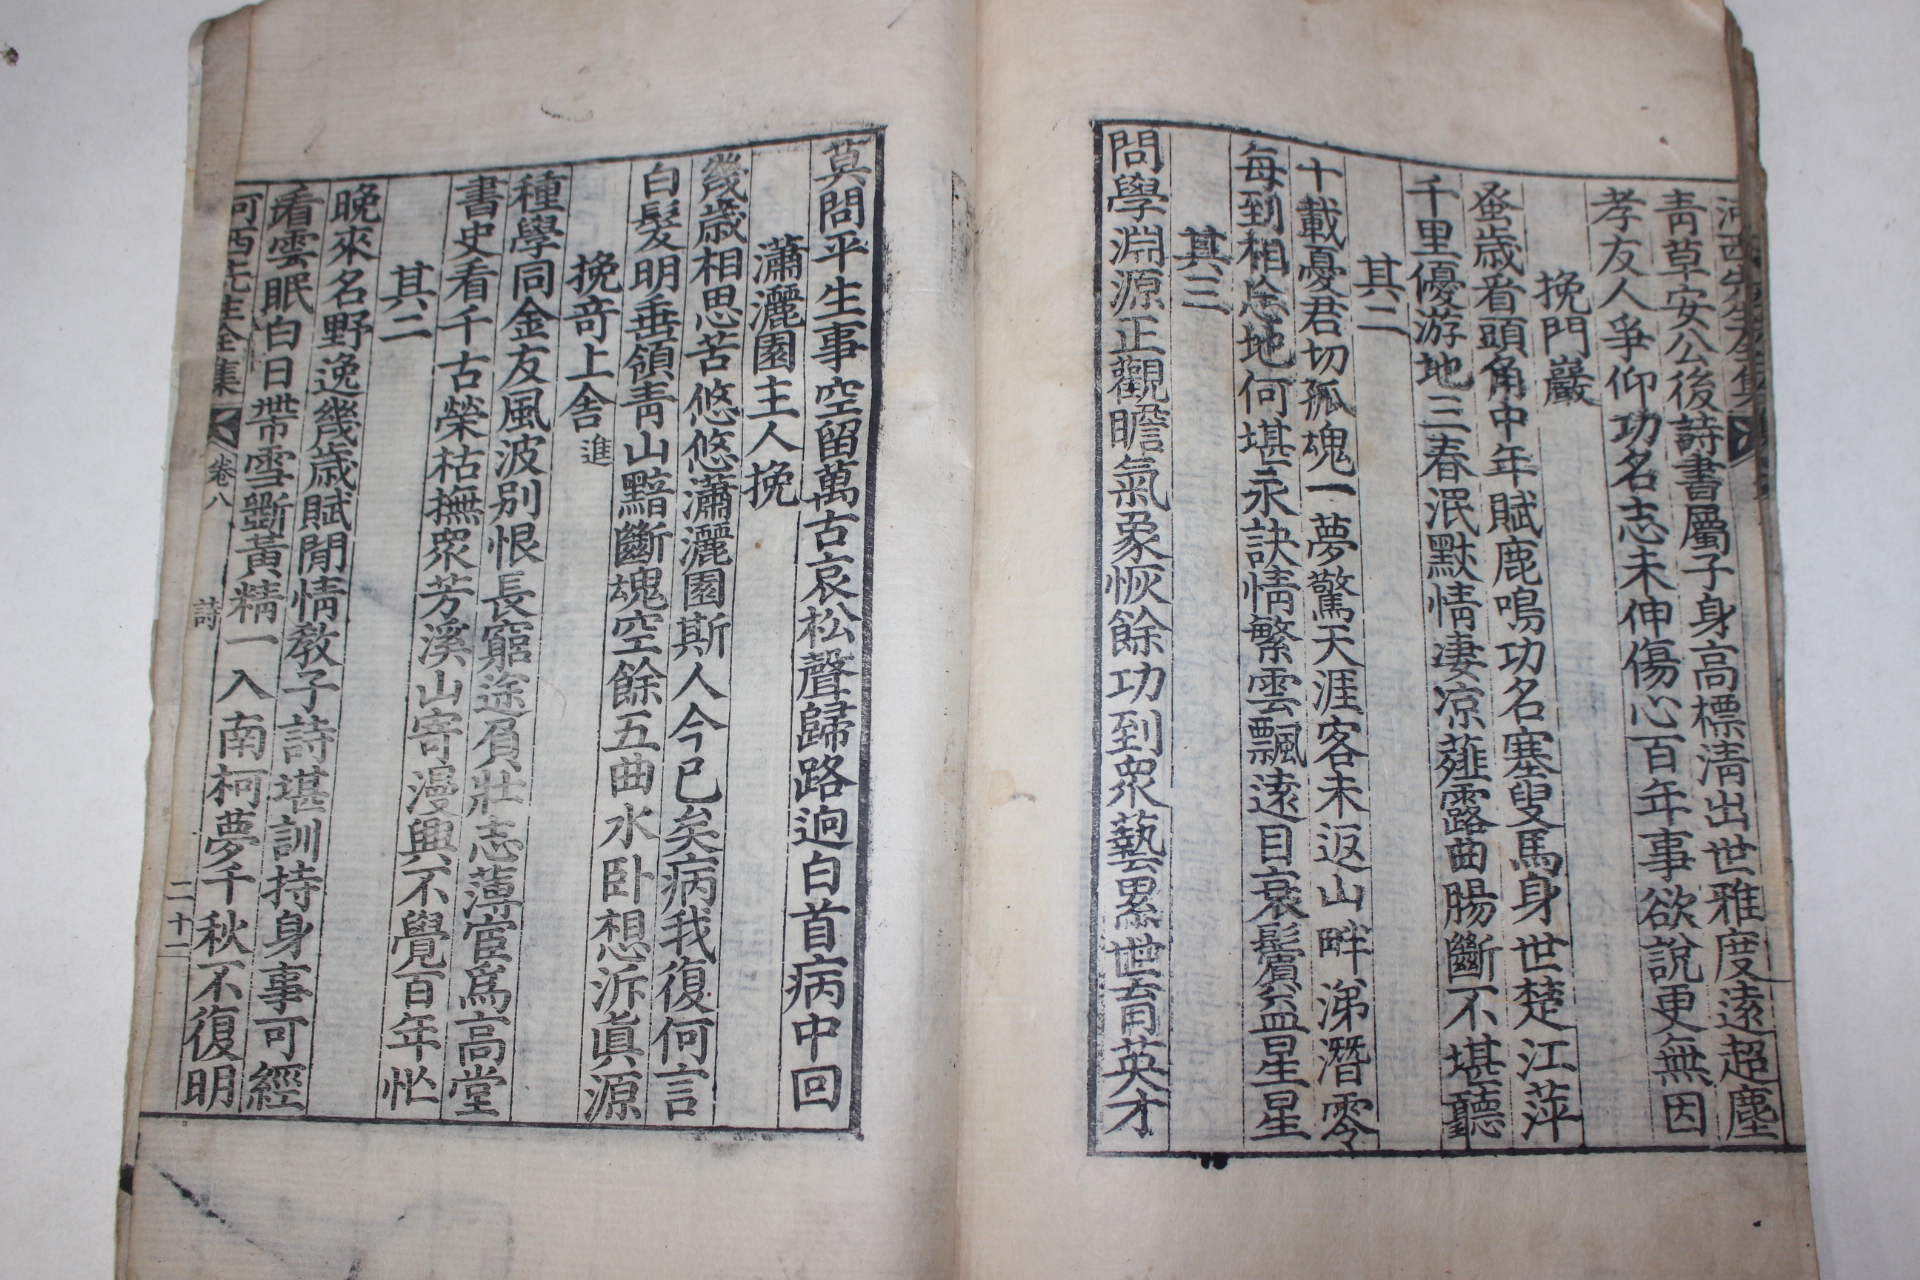 河西先生全集
青草安公後詩書屬子身高標淸出世雅度遠超塵
孝友人爭仰功名志未伸傷心百年事欲說更無因
挽門巖
蚤歲看頭角中年賦鹿鳴功名塞叟馬身世楚江萍
千里優游地三春泯默情凄凉薤露曲腸斷不堪聽
其二
十載憂君切孤魂一夢驚天涯客未返山畔涕潛零
每到相念地何堪永訣情繁雲飄遠目衰鬢益星星
其三
問學淵源正觀瞻氣象恢餘功到衆藝累世育英才
莫問平生事空留萬古哀松聲歸路迥白首病中回
瀟灑園主人挽
幾歲相思苦悠悠瀟灑園斯人今已矣病我復何言
白髮明垂領靑山黯斷魂空餘五曲水卧想泝眞源
挽奇上舍進
種學同金友風波別恨長窮途負壯志薄宦爲高堂
書史看千古榮枯撫衆芳溪山寄漫興不覺百年忙
其二
晩來名野逸幾歲賦閒情敎子詩堪訓持身事可經
看雲眠白日帶雪斸黃精一入南柯夢千秋不復明
河西先生全集
卷八
詩
二十二